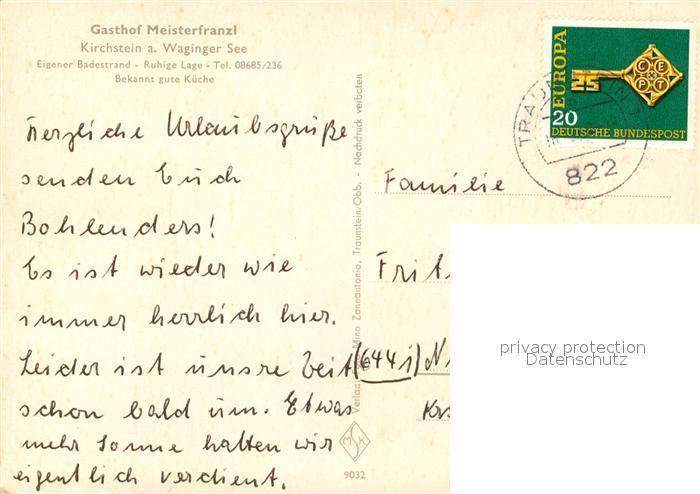 Gasthof Meisterfranzl
Kirchstein a. Waginger See
Eigener Badestrand - Ruhige Lage - Tel. 08685/236
Bekannt gute Küche
Herzliche Urlaubsgrüße
senden Euch
Bohlenders!
Es ist wieder wie
immer herrlich hier.
Leider ist unsre Zeit
schon bald um. Etwas
mehr Sonne hätten wir
eigentlich verdient.
Verlag: Mino Zannantonio, Traunstein/Obb. - Nachdruck verboten
9032
EUROPA
CEPT
20
DEUTSCHE BUNDESPOST
822
Familie
Frit
privacy protection
Datenschutz